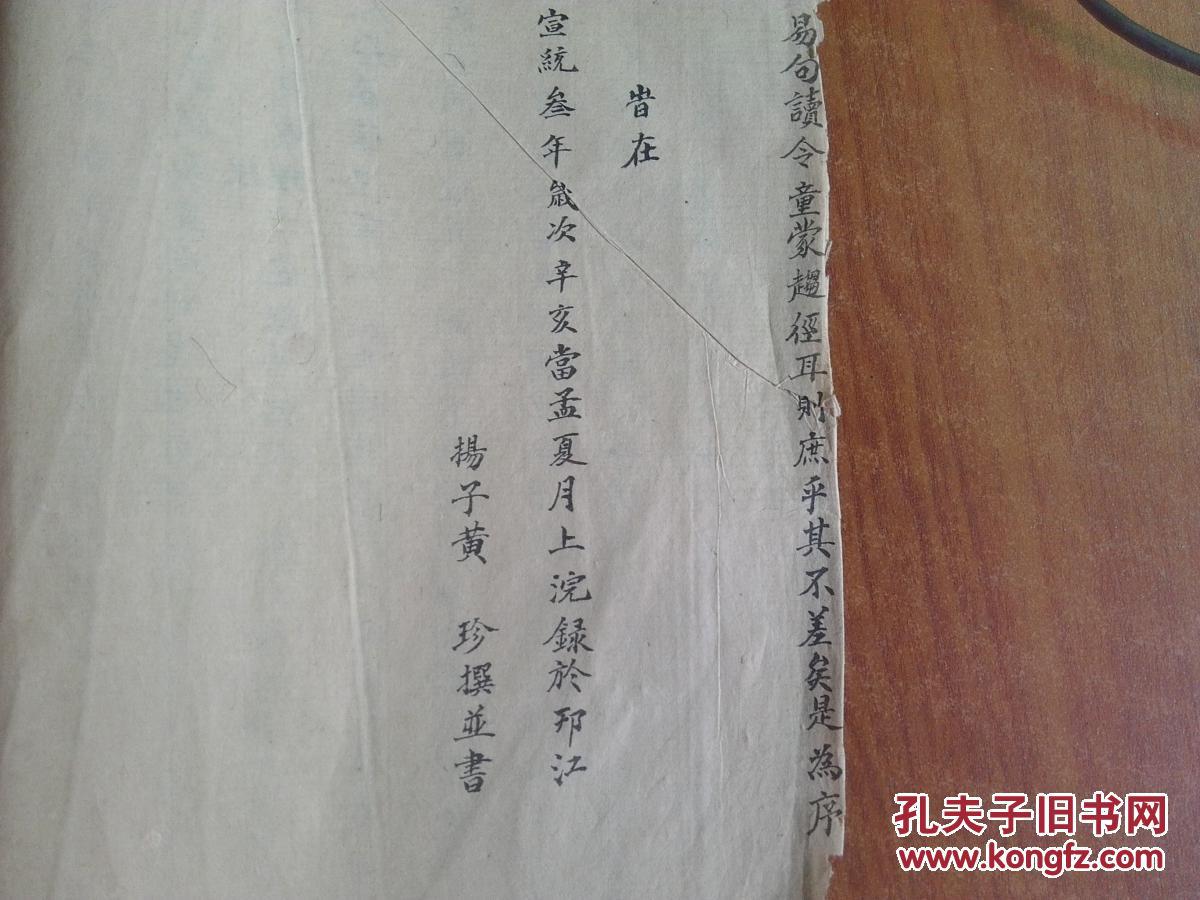 易句讀令童蒙趨徑耳則庶乎其不差矣是為序
旹在
宣統叁年歲次辛亥當孟夏月上浣録於邗江
揚子黄 珍撰並書
孔夫子旧书网
www.kongfz.com